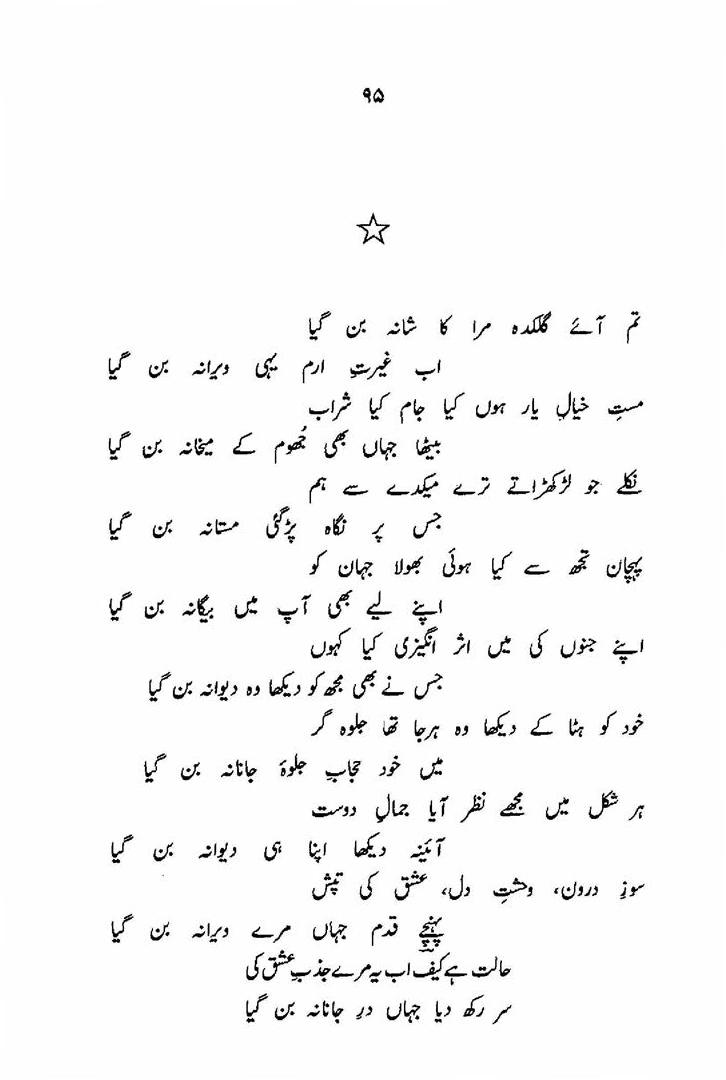 ۹۵
تم آئے گلکدہ مرا کا شانہ بن گیا
اب غیرتِ ارم یہی ویرانہ بن گیا
مستِ خیالِ یار ہوں کیا جام کیا شراب
بیٹھا جہاں بھی جُھوم کے میخانہ بن گیا
نکلے جو لڑکھڑاتے ترے میکدے سے ہم
جس پر نگاہ پڑگئی مستانہ بن گیا
پہچان تجھ سے کیا ہوئی بھولا جہان کو
اپنے لیے بھی آپ میں بیگانہ بن گیا
اپنے جنوں کی میں اثر انگیزی کیا کہوں
جس نے بھی مجھ کو دیکھا وہ دیوانہ بن گیا
خود کو ہٹا کے دیکھا وہ ہرجا تھا جلوہ گر
میں خود حجابِ جلوۂ جانانہ بن گیا
ہر شکل میں مجھے نظر آیا جمالِ دوست
آئینہ دیکھا اپنا ہی دیوانہ بن گیا
سوزِ درون، وحشتِ دل، عشق کی تپش
پہنچے قدم جہاں مرے ویرانہ بن گیا
حالت ہے کیف اب یہ مرے جذبِ عشق کی
سر رکھ دیا جہاں درِ جانانہ بن گیا